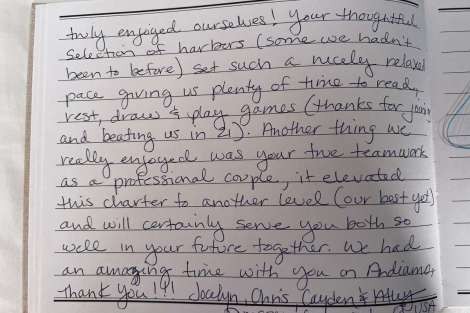 truly enjoyed ourselves! Your thoughtful
selection of harbers (some we hadn't
been to before) set such a nicely relaxed
pace giving us plenty of time to read,
rest, draw & play games (thanks for joining
and beating us in 21). Another thing we
really enjoyed was your true teamwork
as a professional couple, it elevated
this charter to another level (our best yet)
and will certainly serve you both so
well in your future together. We had
an amazing time with you on Andiamo,
Thank you!!! Jocelyn, Chris Cayden &
USA